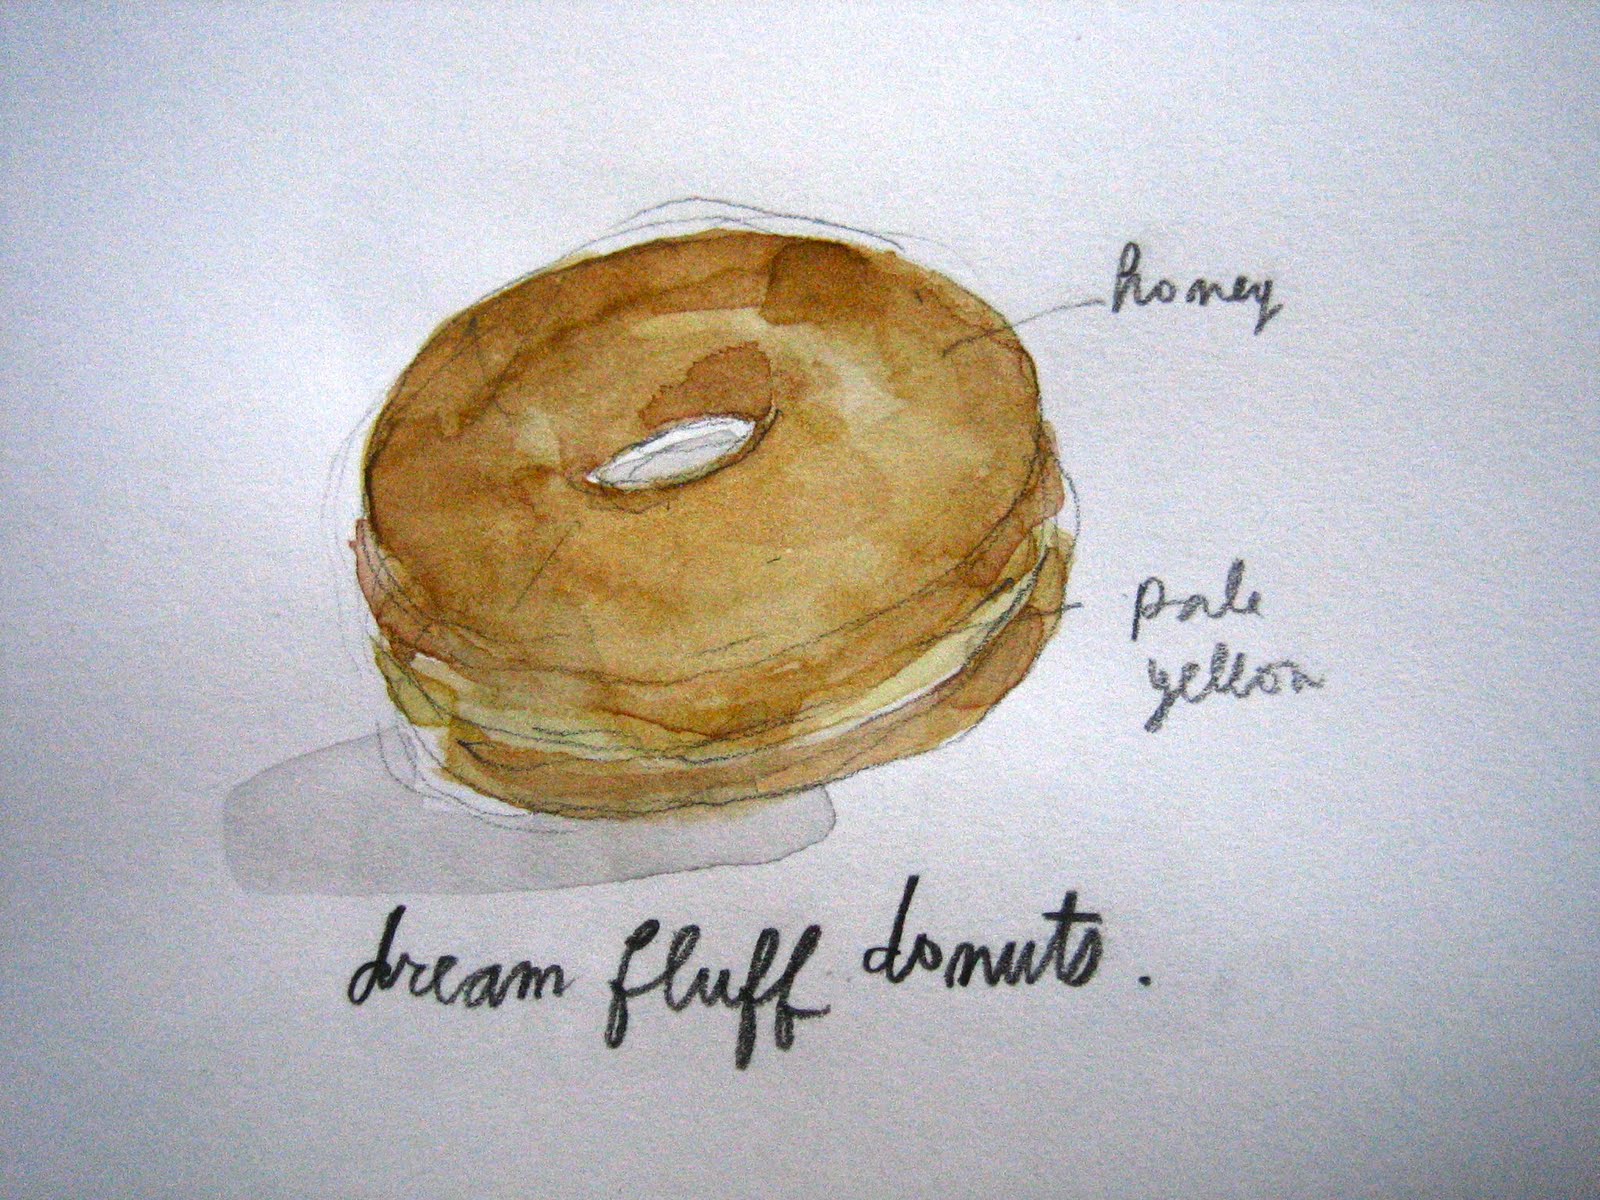 honey
pale
yellow
dream fluff donuts.